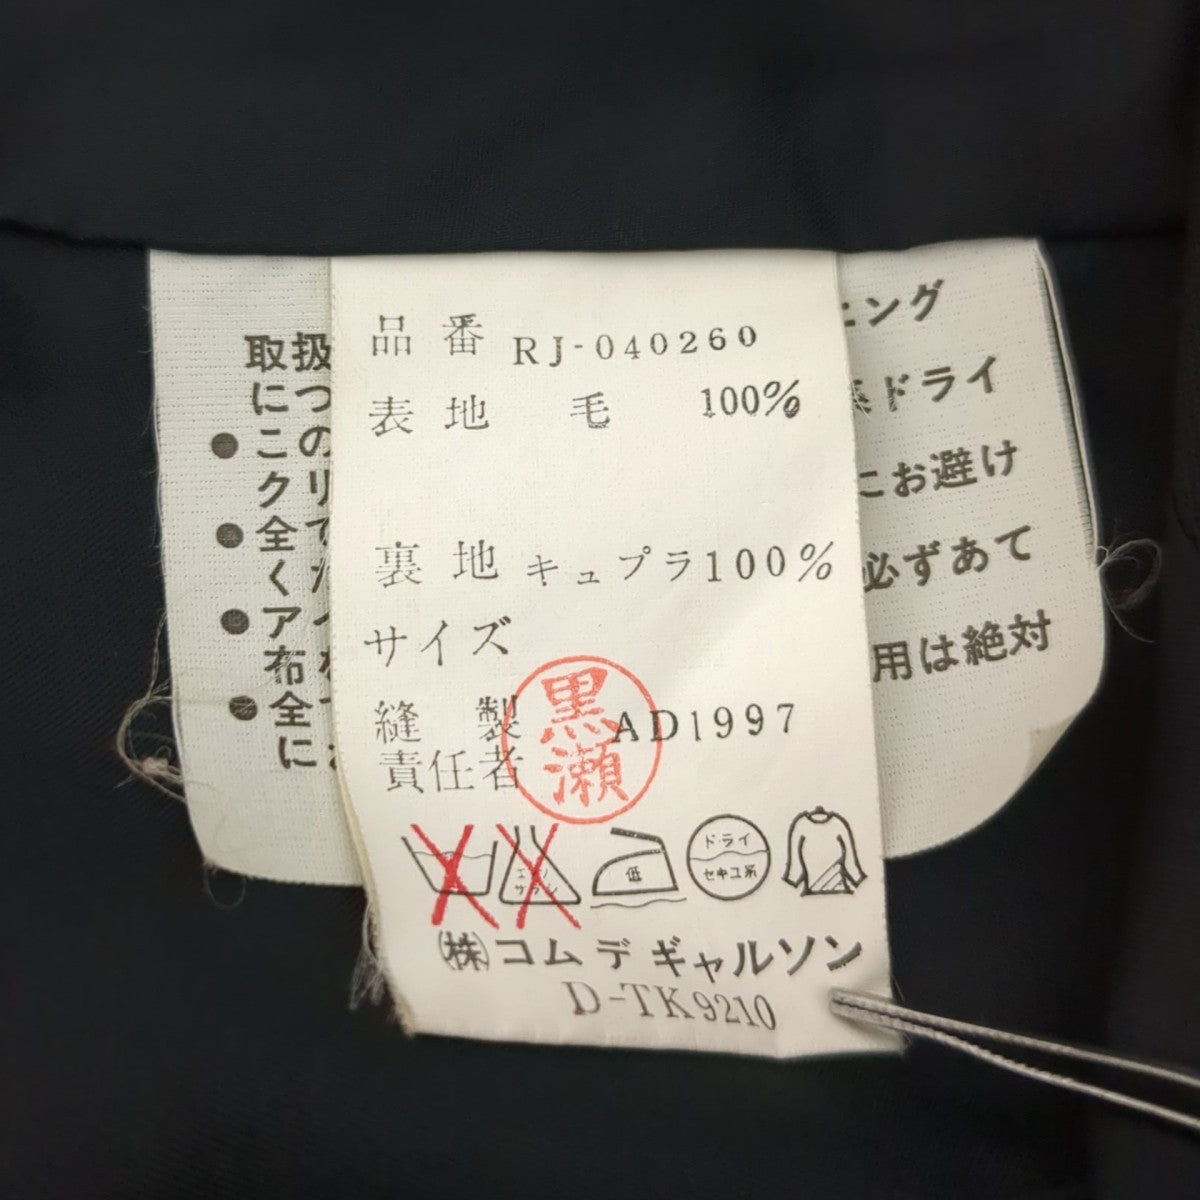 品番 RJ-040260
表地 毛 100%
裏地 キュプラ100%
サイズ
縫製 AD1997
責任者
黒瀬
低
ドライ
セキユ系
㈱コムデギャルソン
D-TK9210
取扱
につ
●この
クリ
●全て
く
●ア
布
●全
に
ニング
系ドライ
にお避け
必ずあて
用は絶対